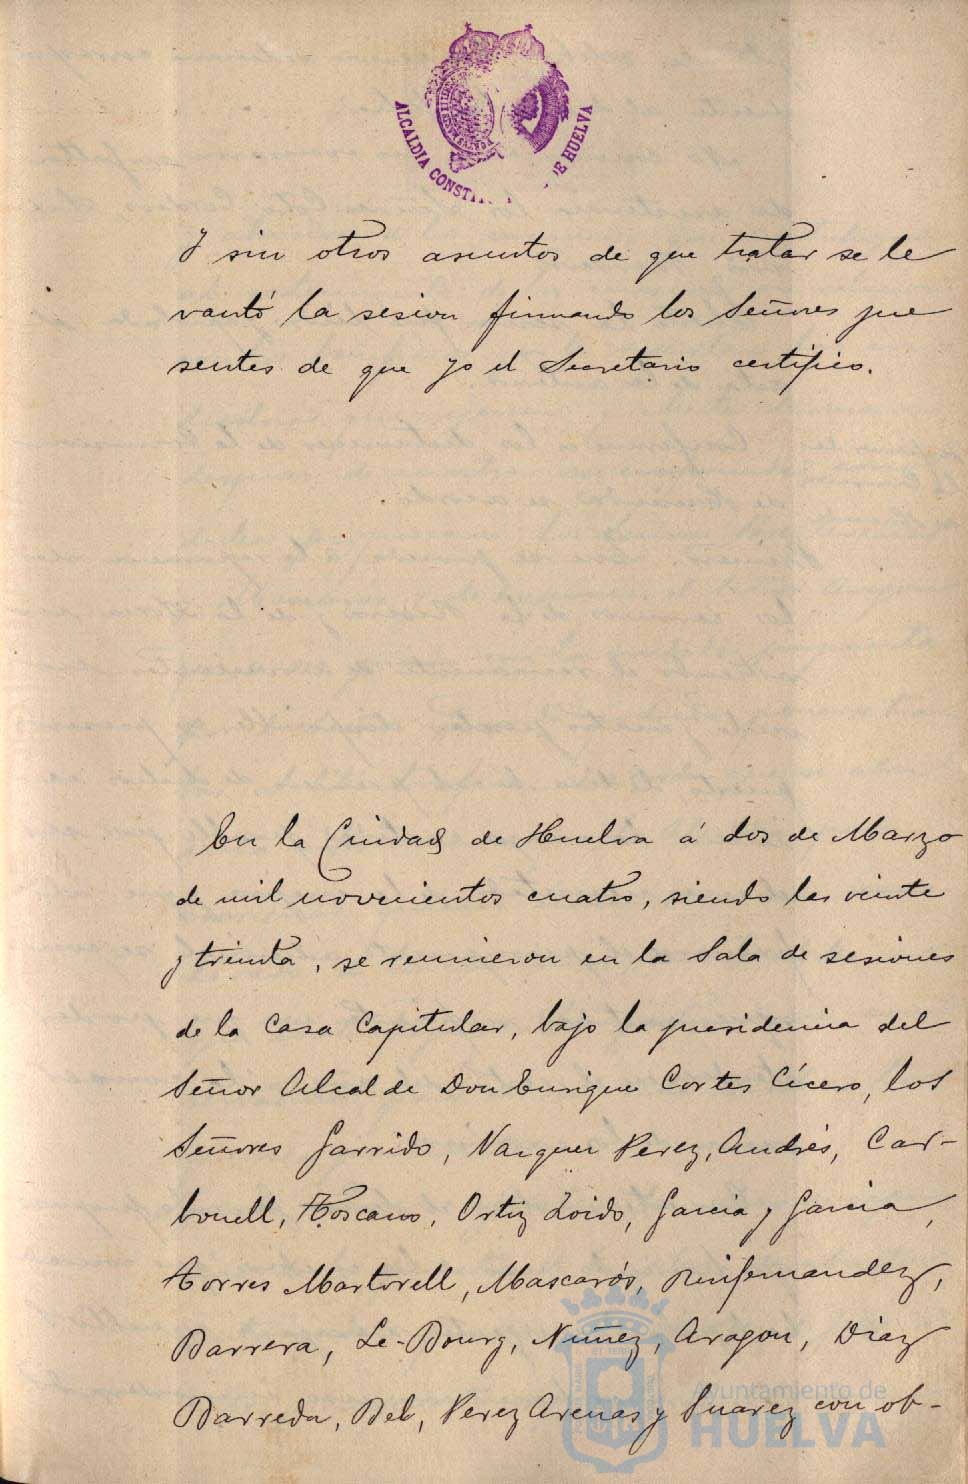 ALCALDIA CONSTI DE HUELVA
Y sin otros asuntos de que tratar se le
vantó la sesion firmando los Señores pre
sentes de que yo el Secretario certifico.
En la Ciudad de Huelva á dos de Marzo
de mil novecientos cuatro, siendo las veinte
y treinta, se reunieron en la Sala de sesiones
de la Casa Capitular, bajo la presidencia del
Señor Alcalde Don Enrique Cortes Cícero, los
Señores Garrido, Vazquez Perez, Andrés, Car-
bonell, Toscano, Ortiz Loido, Garcia y Garcia,
Torres Martorell, Mascarós, Quifernandez,
Barrera, Le-Bourg, Nuñez, Aragon, Diaz
Barreda, Bel, Perez Arenas y Suarez con ob-
Ayuntamiento de
HUELVA